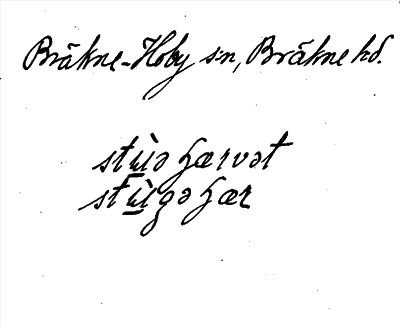 Bräkne-Hoby s:n, Bräkne hd.
stù̲ə hærvət
stù̲gə hær